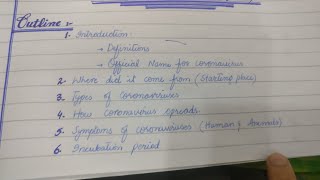 Outline :-
1- Introduction:
→ Definitions
→ Official Name for coronavirus
2- Where did it come from (Starting place)
3- Types of coronaviruses
4- How coronavirus spreads.
5- Symptoms of coronaviruses (Human & Animals)
6- Incubation period